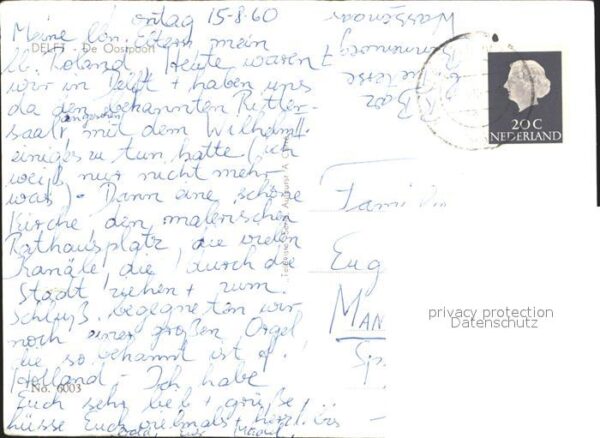 ontag 15-8.60
Meine lbn. Eltern mein
DELFT - De Oostpoort
lb. Roland Heute waren
wir in Delft + haben uns
da den bekannten Ritter-
saal angesehen mit dem Wilhelm II.
einiges zu tun hatte (ich
weiß nur nicht mehr
was) - Dann eine schöne
Kirche den malerischen
Rathausplatz, die vielen
Kanäle die durch die
Stadt ziehen + zum
Schluß begegneten wir
noch einer großen Orgel
die so bekannt ist f.
Holland - Ich habe
No. 6003
Euch sehr lieb + grüße +
küsse Euch vielmals + herzl. bis
20C
NEDERLAND
Wassenaar
Fami
Eug
MAN
Sp.
privacy protection
Datenschutz